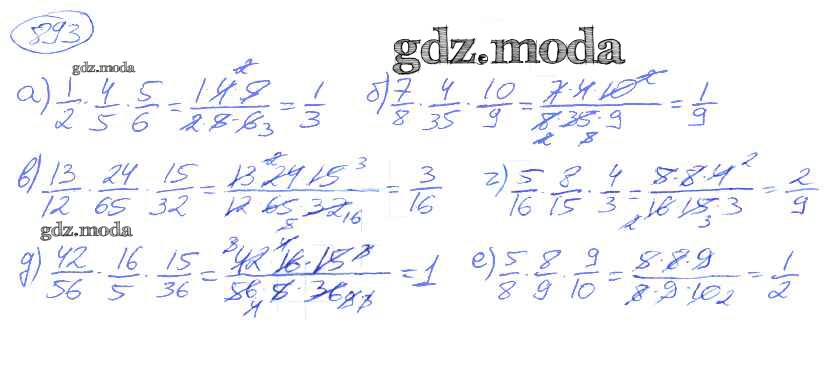 893
gdz.moda
gdz.moda
а) 1/2 · 4/5 · 5/6 = 1·4·5/2·5·6 = 1/3 б) 7/8 · 4/35 · 10/9 = 7·4·10/8·35·9 = 1/9
в) 13/12 · 24/65 · 15/32 = 13·24·15/12·65·32 = 3/16 г) 5/16 · 8/15 · 4/3 = 5·8·4/16·15·3 = 2/9
gdz.moda
д) 42/56 · 16/5 · 15/36 = 42·16·15/56·5·36 = 1 е) 5/8 · 8/9 · 9/10 = 5·8·9/8·9·10 = 1/2